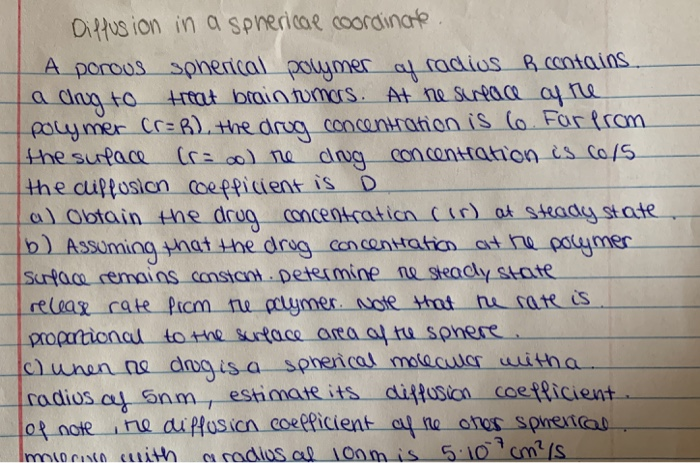 Diffusion in a spherical coordinate.
A porous spherical polymer of radius R contains
a drug to treat brain tumors. At the surface of the
polymer (r=R), the drug concentration is C0. Far from
the surface (r=∞) the drug concentration is C0/5
the diffusion coefficient is D
a) Obtain the drug concentration C(r) at steady state.
b) Assuming that the drug concentration at the polymer
surface remains constant. Determine the steady state
release rate from the polymer. Note that the rate is
proportional to the surface area of the sphere.
c) when the drug is a spherical molecular with a
radius of 5nm, estimate its diffusion coefficient.
of note, the diffusion coefficient of the other spherical
molecule with a radius of 10nm is 5·10⁻⁷ cm²/s